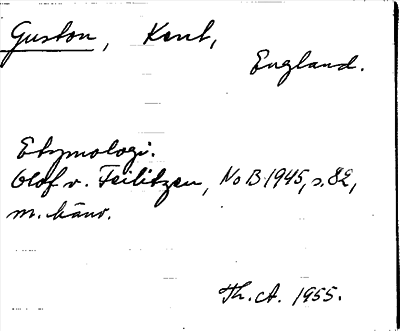 Guston, Kent,
England.
Etymologi.
Olof v. Feilitzen, NoB 1945, s. 82,
m. hänv.
Th. A. 1955.